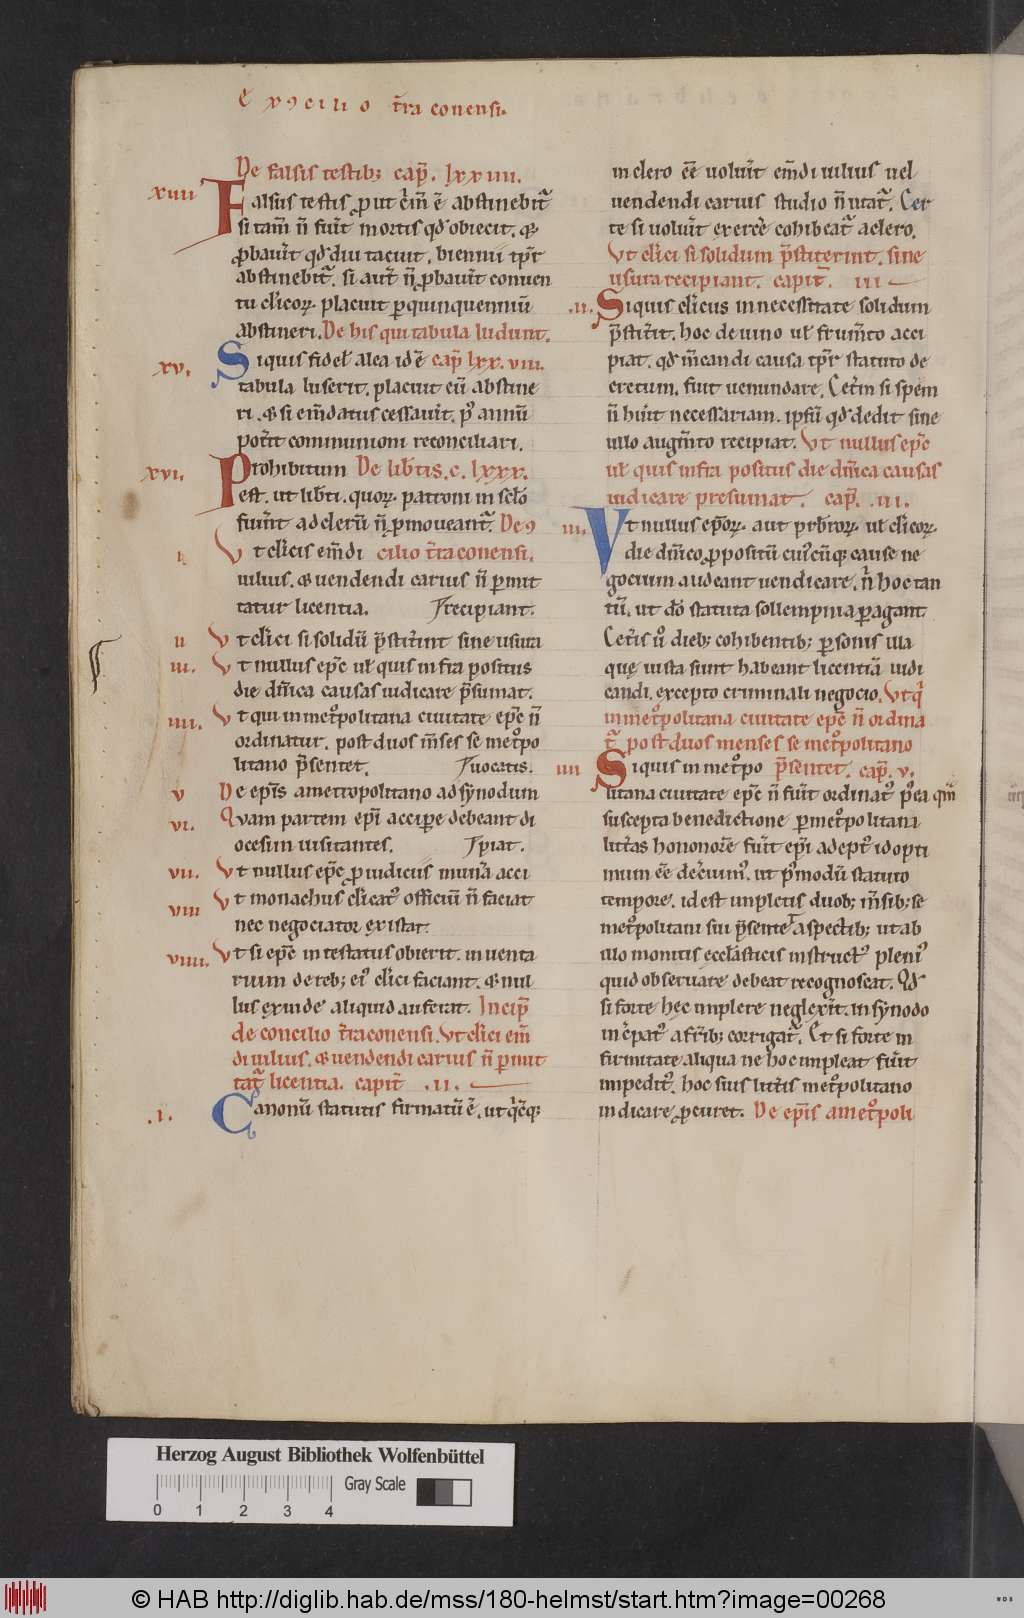 Ex ꝯcilio t̄ra conensi.
De falsis testib; cap̄. lxxiiii.
xiiii Falsus testis ꝓut c̄m̄ ē abstinebit̄
si tam̄ n̄ fuīt mortis qd̄ obiecit. &
ꝓbauīt qd̄ diu tacuit. biennii tp̄r
abstinebit̄. si aut̄ n̄ ꝓbauīt conuen
tu cl̄icoꝝ. placuit ꝑ quinquenniū
abstineri. De his qui tabula ludunt.
xv. Siquis fidel̄ alea id ē cap̄ lxx.viiii.
tabula luserit. placuit eū abstine
ri. & si em̄datus cessauīt. p̄ annū
pot̄it communioni reconciliari.
xvi. Prohibitum De lib̄tis. c. lxxx.
est. ut lib̄ti. quoꝝ patroni in sc̄lo
fuīnt ad clerū n̄ ꝓmoueant̄. De ꝯ
i. Vt cl̄icis em̄di cilio t̄raconensi.
uilius. & uendendi carius n̄ permit
tatur licentia. recipiant.
ii Vt cl̄ici si solidū p̄stit̄int sine usura
iii. Vt nullus ep̄c ul̄ quis infra positus
die dn̄ica causas iudicare p̄sumat.
iiii. Vt qui in met̄politana ciuitate ep̄c n̄
ordinatur. post duos m̄ses se met̄po
litano p̄sentet. uocatis.
v De ep̄is a metropolitano ad synodum
vi. Quam partem ep̄i accipere debeant di
ocesim uisitantes. piat.
vii. Vt nullus ep̄c ꝓ iudiciis mun̄a acci
viii Vt monachus cl̄icat᾽ officiū n̄ faciat
nec negociator existat.
viiii. Vt si ep̄c intestatus obierit. inuenta
rium de reb; ei᾽ cl̄ici faciant. & nul
lus exinde aliquid auferat. Incip̄
de concilio t̄raconensi. Vt cl̄ici em̄
di uilius. & uendendi carius n̄ permit
tat̄ licentia. capit̄ .ii.
.i. Canonū statutis firmatū ē. ut q̄cq;
in clero ēē uolūit em̄di uilius uel
uendendi carius studio n̄ utat̄. Cer
te si uolūit exercē cohibeat̄ a clero.
Vt cl̄ici si solidum p̄stiterint. sine
usura recipiant. capit̄. iii
.ii. Siquis cl̄icus in necessitate solidum
p̄stit̄it. hoc de uino ul̄ frum̄to acci
piat. qd̄ m̄candi causa tp̄r statuto de
cretum. fuit uenundare. Cet̄m si spem
n̄ hūit necessariam. ipsū qd̄ dedit sine
ullo augm̄to recipiat. Vt nullus ep̄c
ul̄ quis infra positus die dn̄ica causas
iudicare presumat. cap̄. .iii.
iii. Vt nullus ep̄oꝝ. aut pr̄broꝝ. ul̄ cl̄icoꝝ.
die dn̄ico ꝓpositū cui᾽cūq; cause ne
gocium audeant uendicare. n̄ hoc tan
tū. ut dō statuta sollempnia peragant.
Cet̄is u᾽ dieb; cohibentib; ꝑsonis illa
quę iusta sunt habeant licentiā iudi
candi. excepto criminali negocio. Vt q̄
in met̄politana ciuitate ep̄c n̄ ordina
t̄ post duos menses se met̄politano
iiii Siquis in met̄po p̄sentet. cap̄. v.
litana ciuitate ep̄c n̄ fuīt ordinat᾽ p᾽ea qm̄
suscepta benedictione ꝑ met̄politana
litt̄as hononorē fuīt ep̄i adept᾽ id opti
mum ēē decīuim᾽. ut p᾽modū statuto
tempore. id est impletis duob; m̄sib; se
met̄politani sui p̄sentet aspectib; ut ab
illo monitis eccl̄asticis instruct᾽ pleni᾽
quid obseruare debeat recognoscat. Qd̄
si forte hęc implere neglexīt. in synodo
inc̄pat᾽ a fr̄ib; corrigat̄. Et si forte in
firmitate aliqua ne hoc impleat fuīt
impedit᾽. hoc suis litt̄is met̄politano
indicare ꝓcuret. De ep̄is a met̄poli
Herzog August Bibliothek Wolfenbüttel
Gray Scale
0 1 2 3 4
© HAB http://diglib.hab.de/mss/180-helmst/start.htm?image=00268